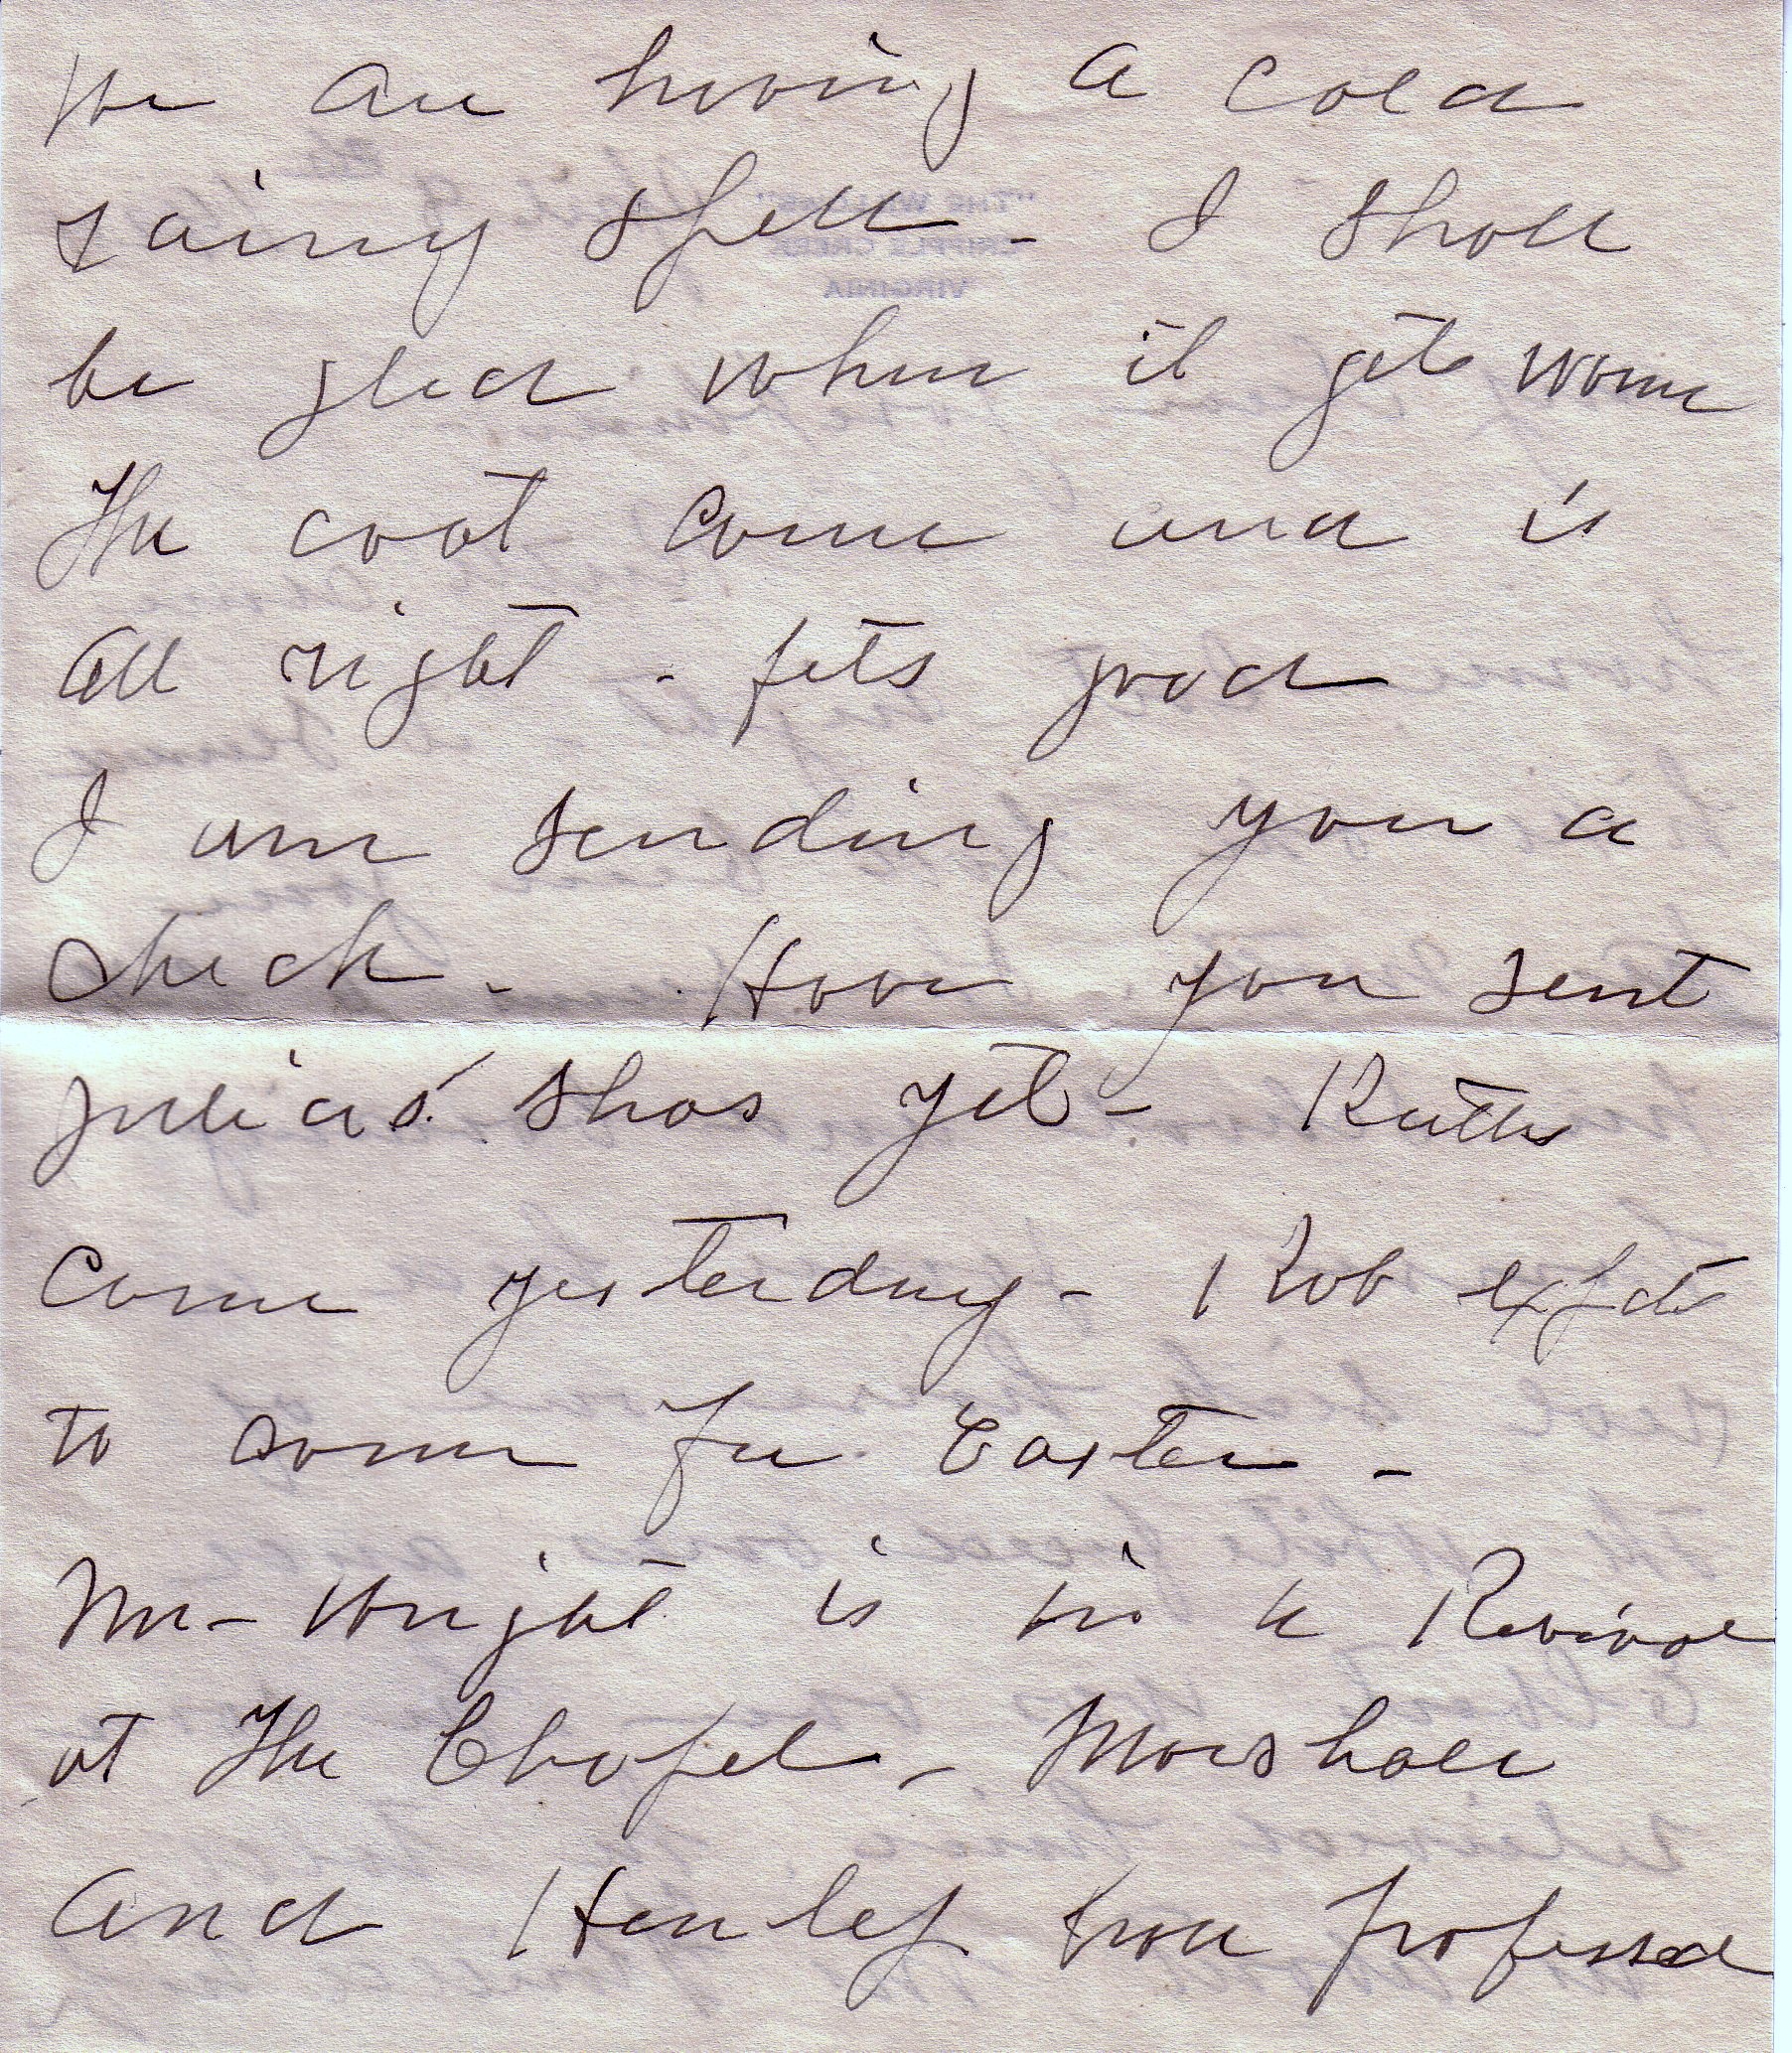 We are having a cold
rainy spell - I shall
be glad when it gets warm
The coat came and is
all right - fits good
I am sending you a
check - Have you sent
Julia's shoes yet - Ruth
came yesterday - Rob expects
to come for Easter -
Mr - Wright is in a Revival
at the Chapel - Marshall
and Henley have professed